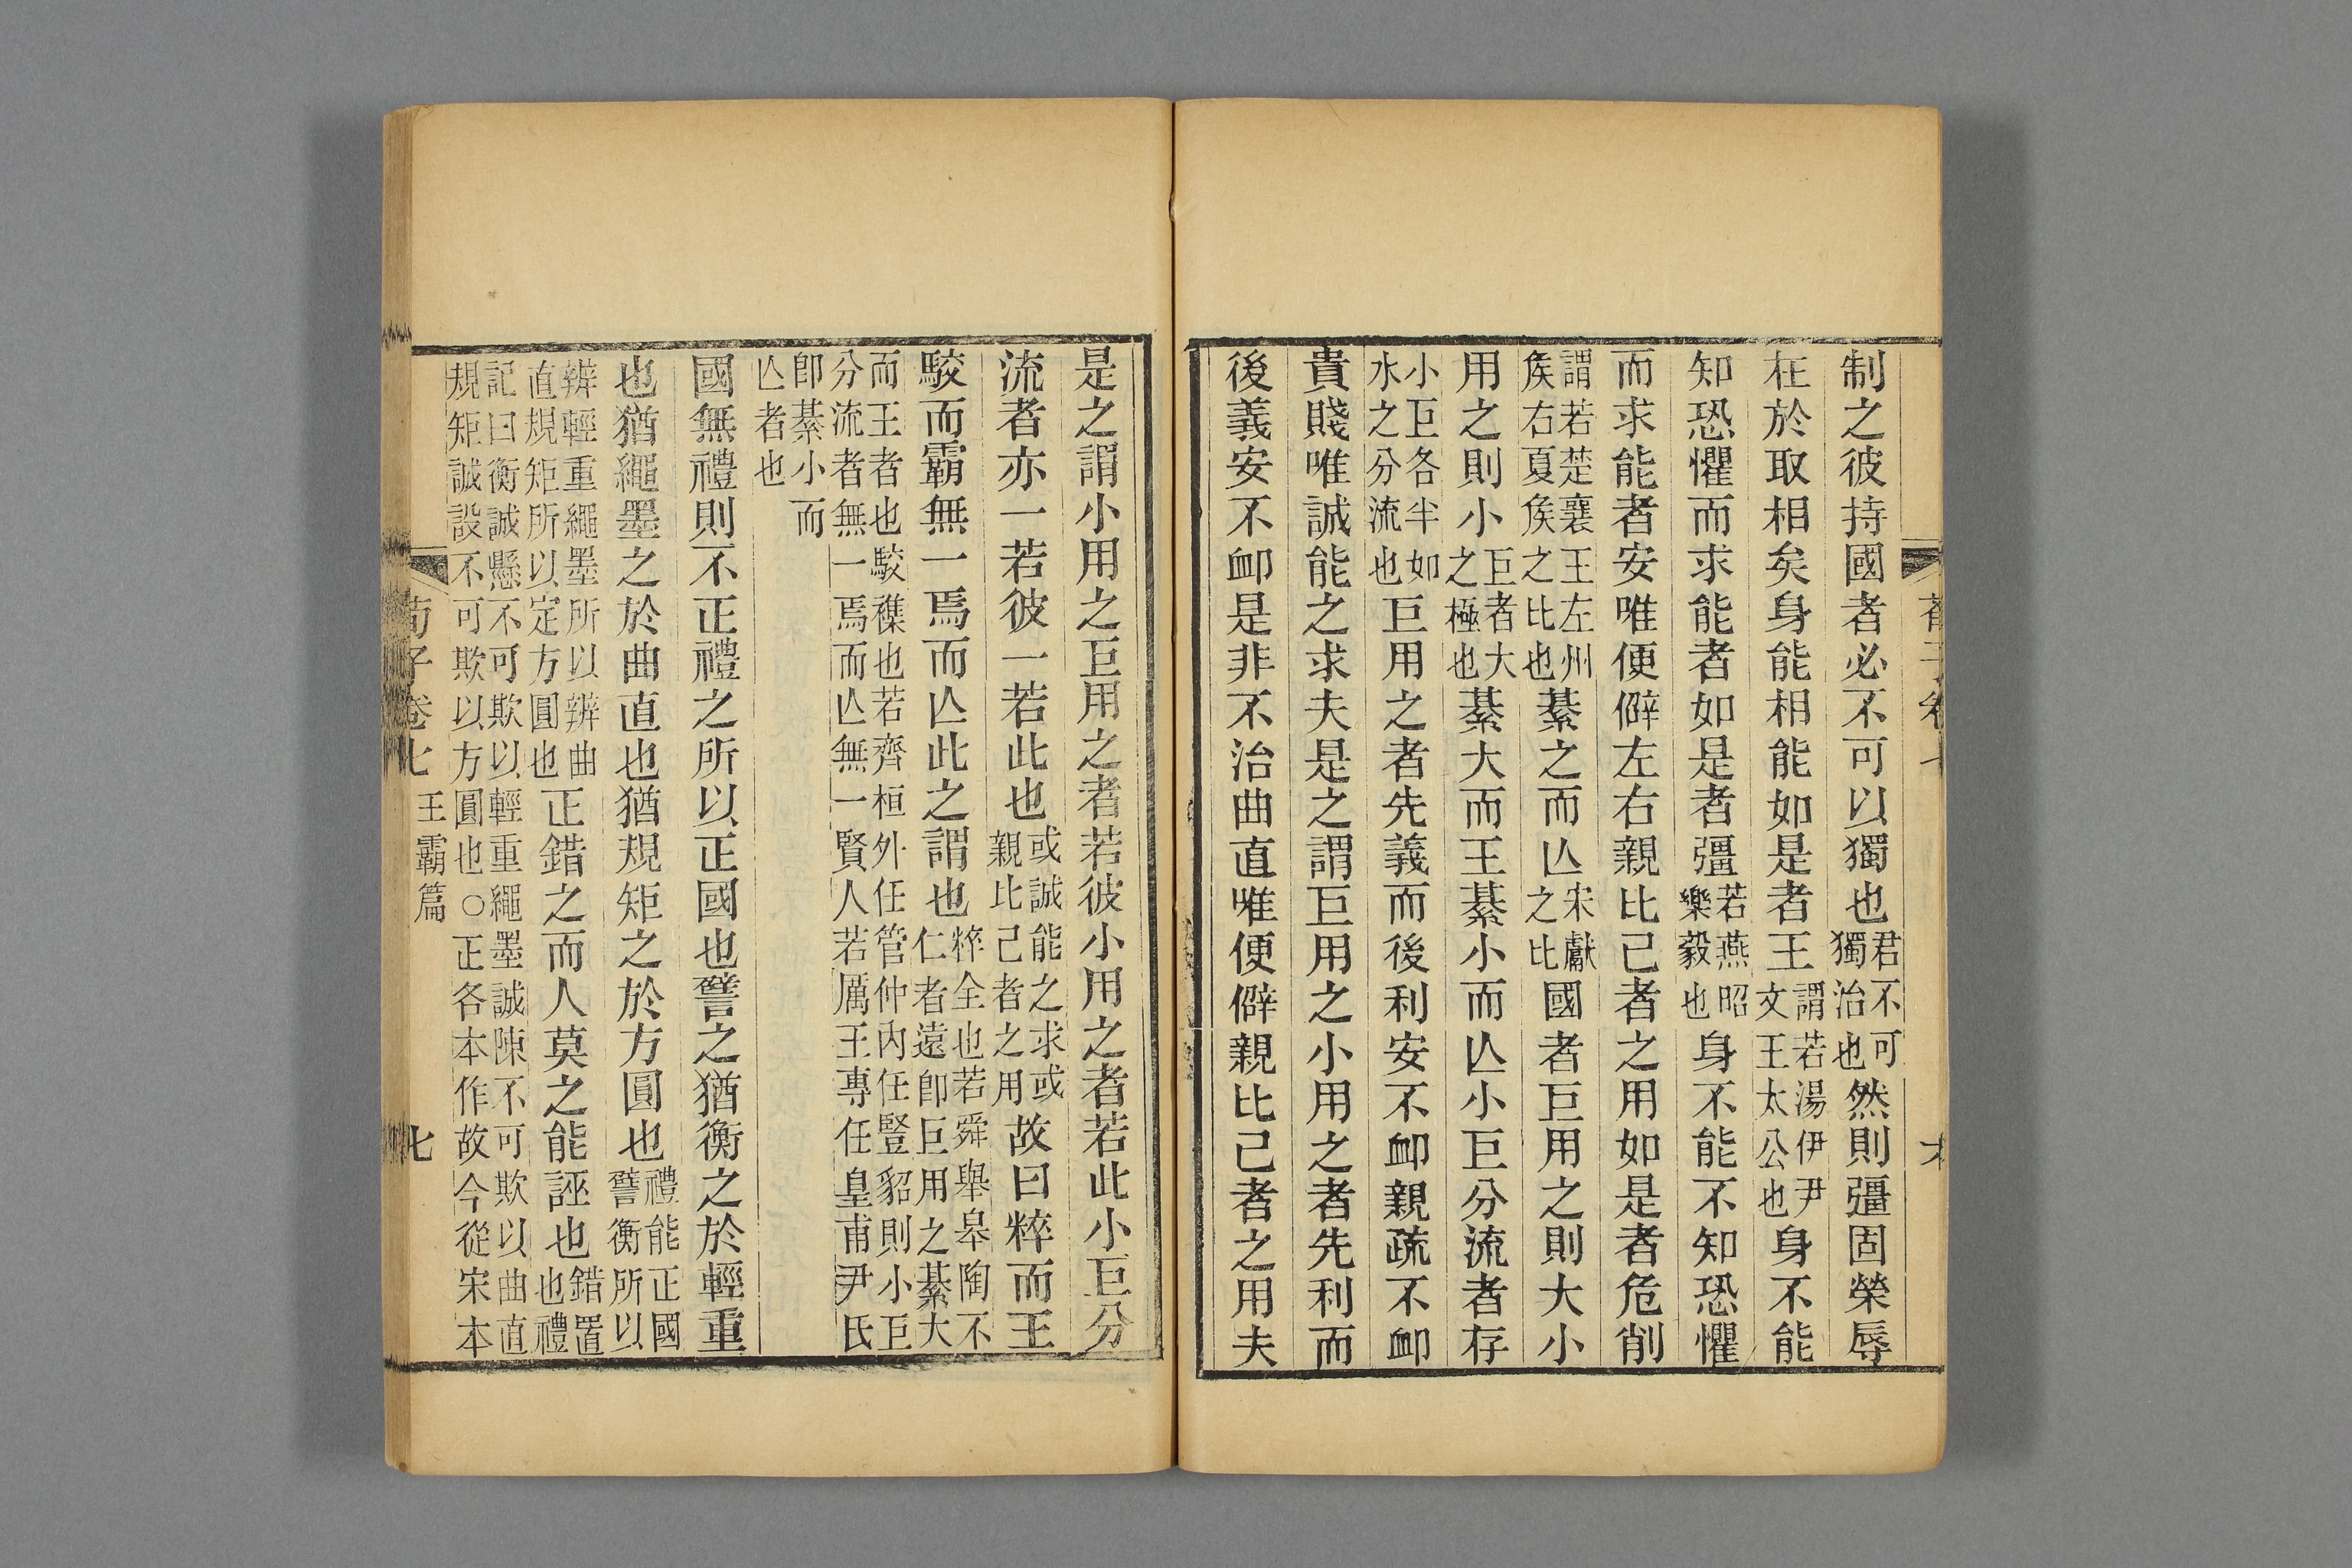 制之彼持國者必不可以獨也君不可獨治也然則彊固榮辱
在於取相矣身能相能如是者王謂若湯伊尹文王太公也身不能
知恐懼而求能者如是者彊若燕昭樂毅也身不能不知恐懼
而求能者安唯便僻左右親比己者之用如是者危削
謂若楚襄王左州矦右夏矦之比也綦之而亾宋獻之比國者巨用之則大小
用之則小巨者大之極也綦大而王綦小而亾小巨分流者存
小巨各半如水之分流也巨用之者先義而後利安不卹親疏不卹
貴賤唯誠能之求夫是之謂巨用之小用之者先利而
後義安不卹是非不治曲直唯便僻親比己者之用夫
是之謂小用之巨用之者若彼小用之者若此小巨分
流者亦一若彼一若此也或誠能之求或親比己者之用故曰粹而王
駮而霸無一焉而亾此之謂也粹全也若舜舉皋陶不仁者遠卽巨用之綦大
而王者也駮襍也若齊桓外任管仲內任豎貂則小巨
分流者無一焉而亾無一賢人若厲王專任皇甫尹氏
卽綦小而
亾者也
國無禮則不正禮之所以正國也譬之猶衡之於輕重
也猶繩墨之於曲直也猶規矩之於方圓也禮能正國譬衡所以
辨輕重繩墨所以辨曲直規矩所以定方圓也正錯之而人莫之能誣也錯置也禮
記曰衡誠懸不可欺以輕重繩墨誠陳不可欺以曲直
規矩誠設不可欺以方圓也○正各本作故今從宋本
荀子卷七 王霸篇 七